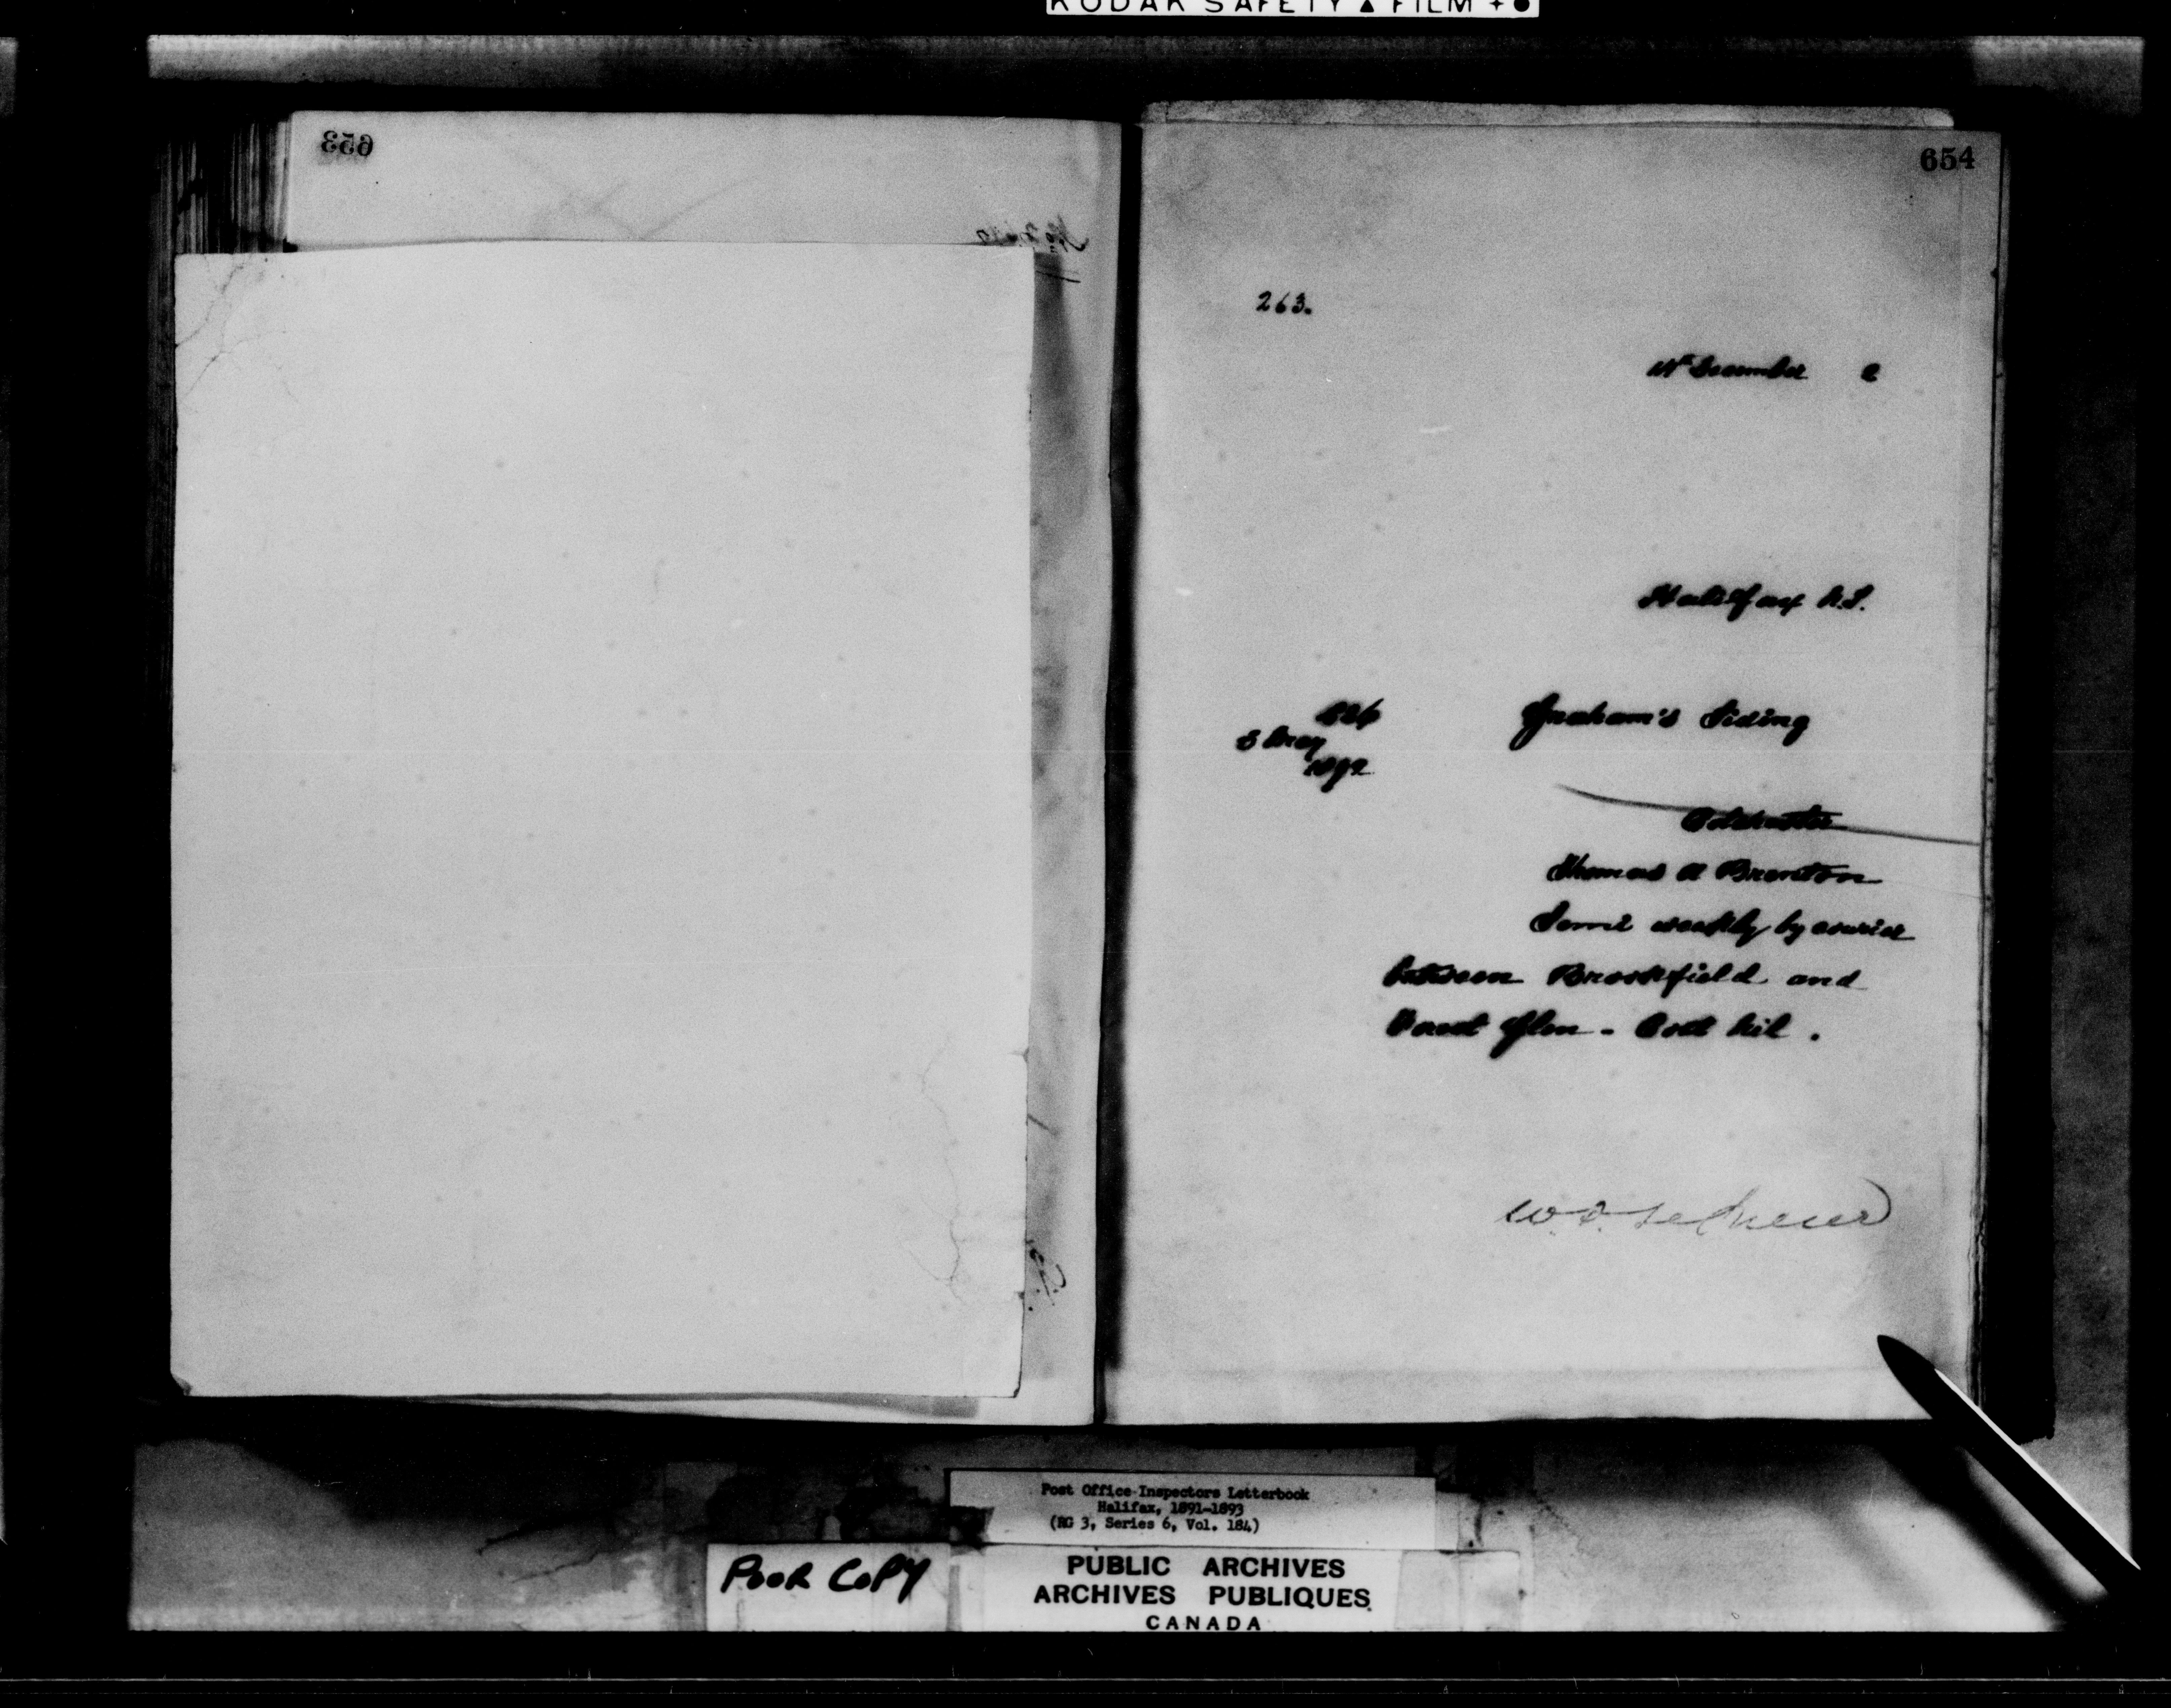 KODAK SAFETY ▲ FILM + ●
653
654
263.
14th December 2
Halifax N.S.
Graham's Siding
1892
Colchester
Thomas A Brenton
Semi weekly by courier
between Brookfield and
Forest Glen - Cost Nil.
Post Office Inspectors Letterbook
Halifax, 1891-1893
(RG 3, Series 6, Vol. 184)
POOR COPY
PUBLIC ARCHIVES
ARCHIVES PUBLIQUES
CANADA